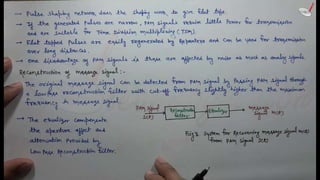 → Pulse shaping network does the shaping work to give flat tops.
→ If the generated pulses are narrow, PAM signals require little power for transmission
and are suitable for Time Division multiplexing (TDM).
→ Flat topped pulses are easily regenerated by repeaters and can be used for transmission
over long distances.
→ One disadvantage of PAM signals is these are affected by noise as much as analog signals.
Reconstruction of message signal:-
The original message signal can be detected from PAM signal by passing PAM signal through
a low pass reconstruction filter with cut-off frequency slightly higher than the maximum
frequency in message signal.
PAM signal
s(t)
Reconstruction filter
Equalizer
message
signal m(t)
→ The equalizer compensate
the aperture effect and
attenuation provided by
Low Pass Reconstruction filter.
Fig 2. System for Recovering message signal m(t)
from PAM signal s(t)